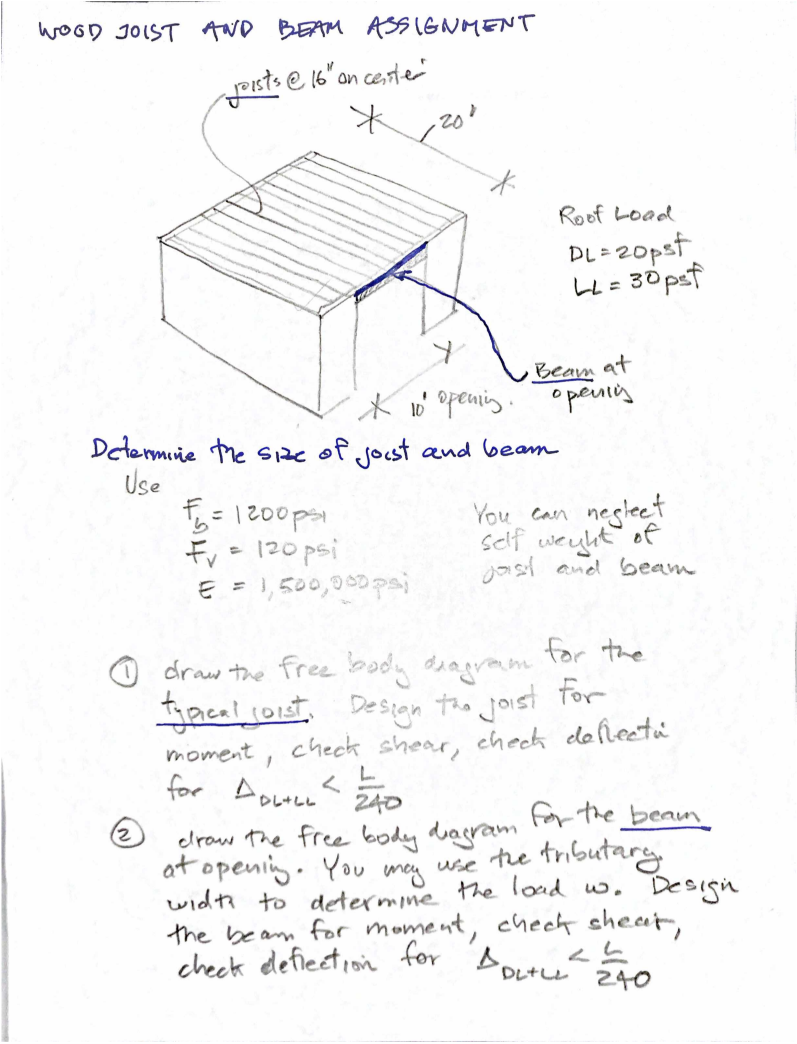 WOOD JOIST AND BEAM ASSIGNMENT
joists @ 16" on center
20'
Roof Load
DL = 20 psf
LL = 30 psf
Beam at
opening
10' opening.
Determine the size of joist and beam
Use
Fb = 1200 psi
Fv = 120 psi
E = 1,500,000 psi
You can neglect
self weight of
joist and beam
① draw the free body diagram for the
typical joist. Design the joist for
moment, check shear, check deflectin
for Δ DL+LL < L/240
② draw the free body diagram for the beam
at opening. You may use the tributary
width to determine the load w. Design
the beam for moment, check shear,
check deflection for Δ DL+LL < L/240